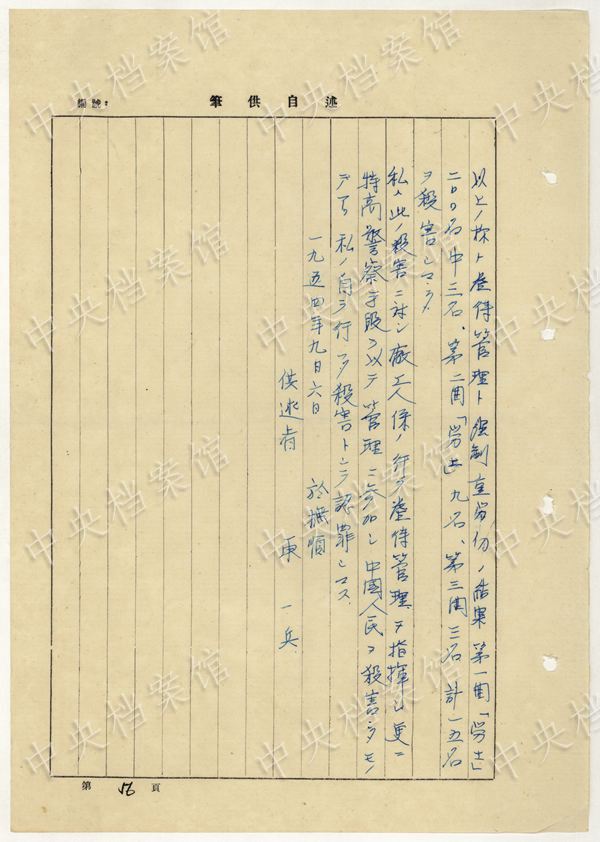 編號：
述自供筆
以上ノ様ト虐待管理ト强制重労仂ノ結果第一囬「労工」
二〇〇名中三名、第二囬「労工」九名、第三囬三名計一五名
ヲ殺害シマシタ
私ハ此ノ殺害ニ対シ廠工人係ノ行フ虐待管理ヲ指揮シ更ニ
特高警察手段ヲ以テ管理ニ参加シ中國人民ヲ殺害シタモノ
デアリ私ノ自ラ行フタ殺害トシテ認罪シマス
一九五四年九月六日
於撫順
供述者
一兵
第56頁
中央档案馆